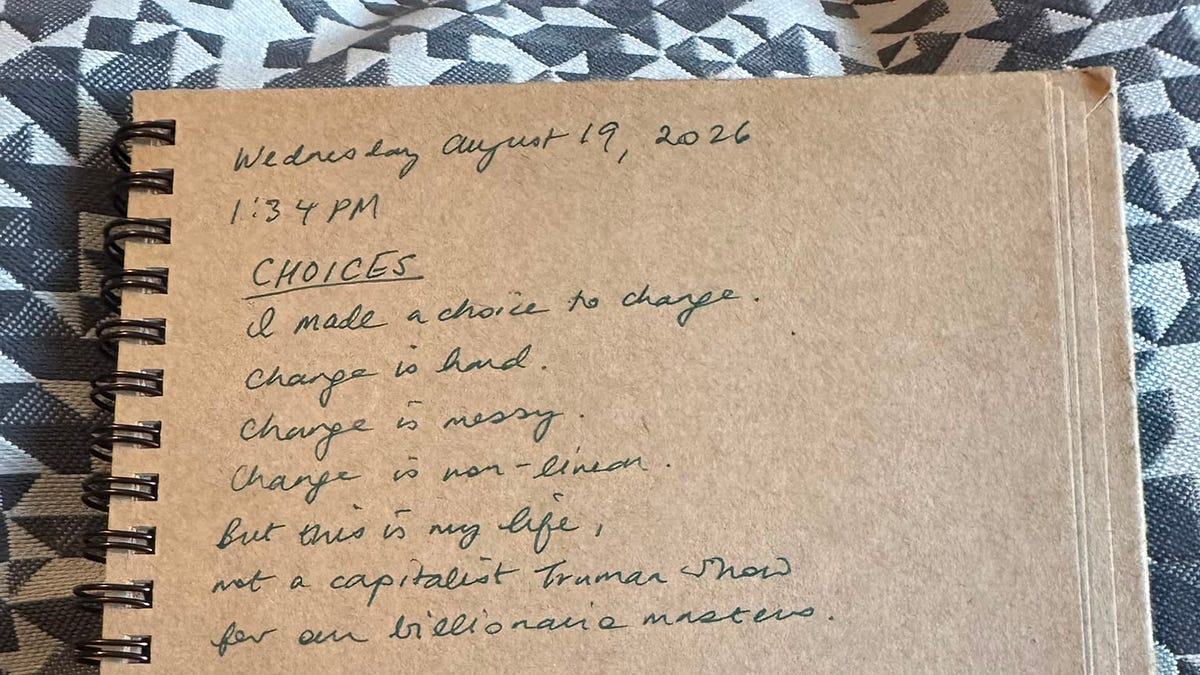 Wednesday August 19, 2026
1:34 PM
CHOICES
I made a choice to change.
Change is hard.
Change is messy.
Change is non-linear.
But this is my life,
not a capitalist Truman Show
for our billionaire masters.